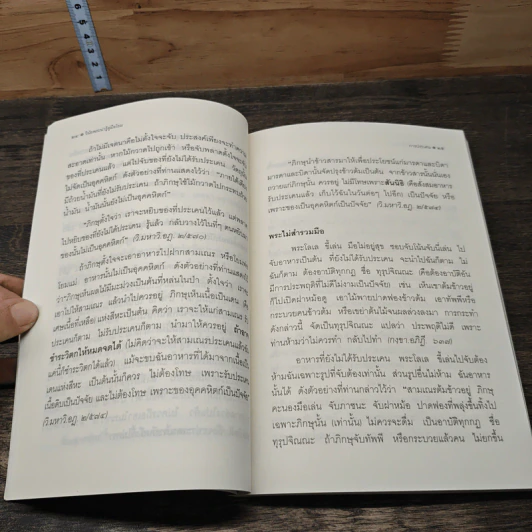 ถ้าไม่มีเจตนาคือไม่ตั้งใจจะจับ ประสงค์เพียงจะทำความ
สะอาดเท่านั้น หากไม้กวาดไปถูกเข้า หรือจับพลาดตั้งใจจะจับของ
ที่ประเคนแล้ว แต่ไปจับของที่ยังไม่ได้รับประเคน
ไม่จัดเป็นอุคคหิตก์ ดังตัวอย่างที่ท่านแสดงไว้ว่า "ภายใต้เตียง
มีถ้วยน้ำมันที่ยังไม่รับประเคน ถ้าภิกษุใช้ไม้กวาดไปกระทบถ้วย
น้ำมัน น้ำมันนั้นยังไม่เป็นอุคคหิตก์"
"ภิกษุตั้งใจว่า เราจะหยิบของที่ประเคนไว้แล้ว แต่พลาด
ไปหยิบของที่ยังไม่ได้ประเคน รู้แล้ว กลับวางไว้ในที่ๆ ตนหยิบ
ของนั้นไม่เป็นอุคคหิตก์" (วิ.มหาวิ.อฏ. ๒/๕๘๐)
ถ้าภิกษุตั้งใจจะเอาอาหารไปฝากสามเณร หรือโยมพ่อ
โยมแม่ อาหารนั้นไม่เป็นอุคคหิตก์ ดังตัวอย่างที่ท่านแสดงไว้
ว่า "ภิกษุเห็นผลไม้มีมะม่วงเป็นต้นที่หล่นในป่า ตั้งใจว่า เราจะ
ให้แก่สามเณร แล้วนำไปควรอยู่ ภิกษุเห็นเนื้อเป็นเดน (คือ
เศษเนื้อที่เหลือ) แห่งสีหะเป็นต้น คิดว่า เราจะให้แก่สามเณร
ประเคนก็ตาม ไม่รับประเคนก็ตาม นำมาให้ควรอยู่ ถ้าอาจ
ชำระวิตกให้หมดจดได้ (ไม่คิดว่าจะให้สามเณรประเคนแล้ว
แค่นี้ก็ชำระวิตกได้แล้ว) แม้จะขบฉันอาหารที่ได้มาจากเนื้อเป็น
เดนแห่งสีหะ เป็นต้นนั้นก็ควร ไม่ต้องโทษ เพราะของที่รับประเคน
เนื้อดิบเป็นปัจจัย และไม่ต้องโทษ เพราะของอุคคหิตก์เป็นปัจจัย"
(วิ.มหาวิ.อฏ. ๒/๕๘๔)
"ภิกษุนำข้าวสารมาให้เพื่อประโยชน์แก่มารดาและบิดา
มารดาและบิดานั้นจัดปรุงข้าวต้มเป็นต้น จากข้าวสารนั้นนั่นเอง
ถวายแก่ภิกษุนั้น ควรอยู่ ไม่มีโทษเพราะสันนิธิ (คือสั่งสมอาหาร
รับประเคนแล้ว เก็บไว้ฉันในวันต่อๆ ไปอีก เป็นปัจจัย หรือ
เพราะของเป็นอุคคหิตก์เป็นปัจจัย" (วิ.มหาวิ.อฏ. ๒/๕๗๙)
พระไม่สำรวมมือ
พระโลเล ขี้เล่น มือไม่อยู่สุข ชอบจับโน้นจับนี่เล่น ไป
จับอาหารเป็นต้น ที่ยังไม่ได้รับประเคน จะฉันก็ตาม ไม่
ฉันก็ตาม ต้องอาบัติทุกกฏ ชื่อ ทุรุปจิณณะ (คือต้องอาบัติอัน
มีการประพฤติที่ไม่ดีไม่งามเป็นปัจจัย) เช่น เห็นเขาต้มข้าวอยู่
ก็ไปเปิดฝาหม้อดู เอาไม้พายาปาดฟองข้าวต้ม เอาทัพพีหรือ
กระบวยคนข้าวต้ม หรือเขย่าต้นไม้จนผลล่วงลงมา การกระทำ
ดังกล่าวนี้ จัดเป็นทุรุปจิณณะ แปลว่า ประพฤติไม่ดี เพราะ
ท่านห้ามว่าไม่ควรทำ กลับไปทำ (กงขา.อภิฏี ๖๓๗)
อาหารที่ยังไม่ได้รับประเคน พระโลเล ขี้เล่นไปจับต้อง
ห้ามฉันเฉพาะรูปที่จับต้องเท่านั้น ส่วนรูปอื่นไม่ห้าม ฉันอาหาร
นั้นได้ ดังตัวอย่างที่ท่านกล่าวไว้ว่า "สามเณรต้มข้าวอยู่ ภิกษุ
คะนองมือเล่น จับภาชนะ จับฝาหม้อ ปาดฟองที่พลุ่งขึ้นทิ้งไป
เฉพาะภิกษุนั้น (เท่านั้น) ไม่ควรจะดื่ม เป็นอาบัติทุกกฏ ชื่อ
ทุรุปจิณณะ ถ้าภิกษุจับทัพพี หรือกระบวยแล้วคน ไม่ยกขึ้น